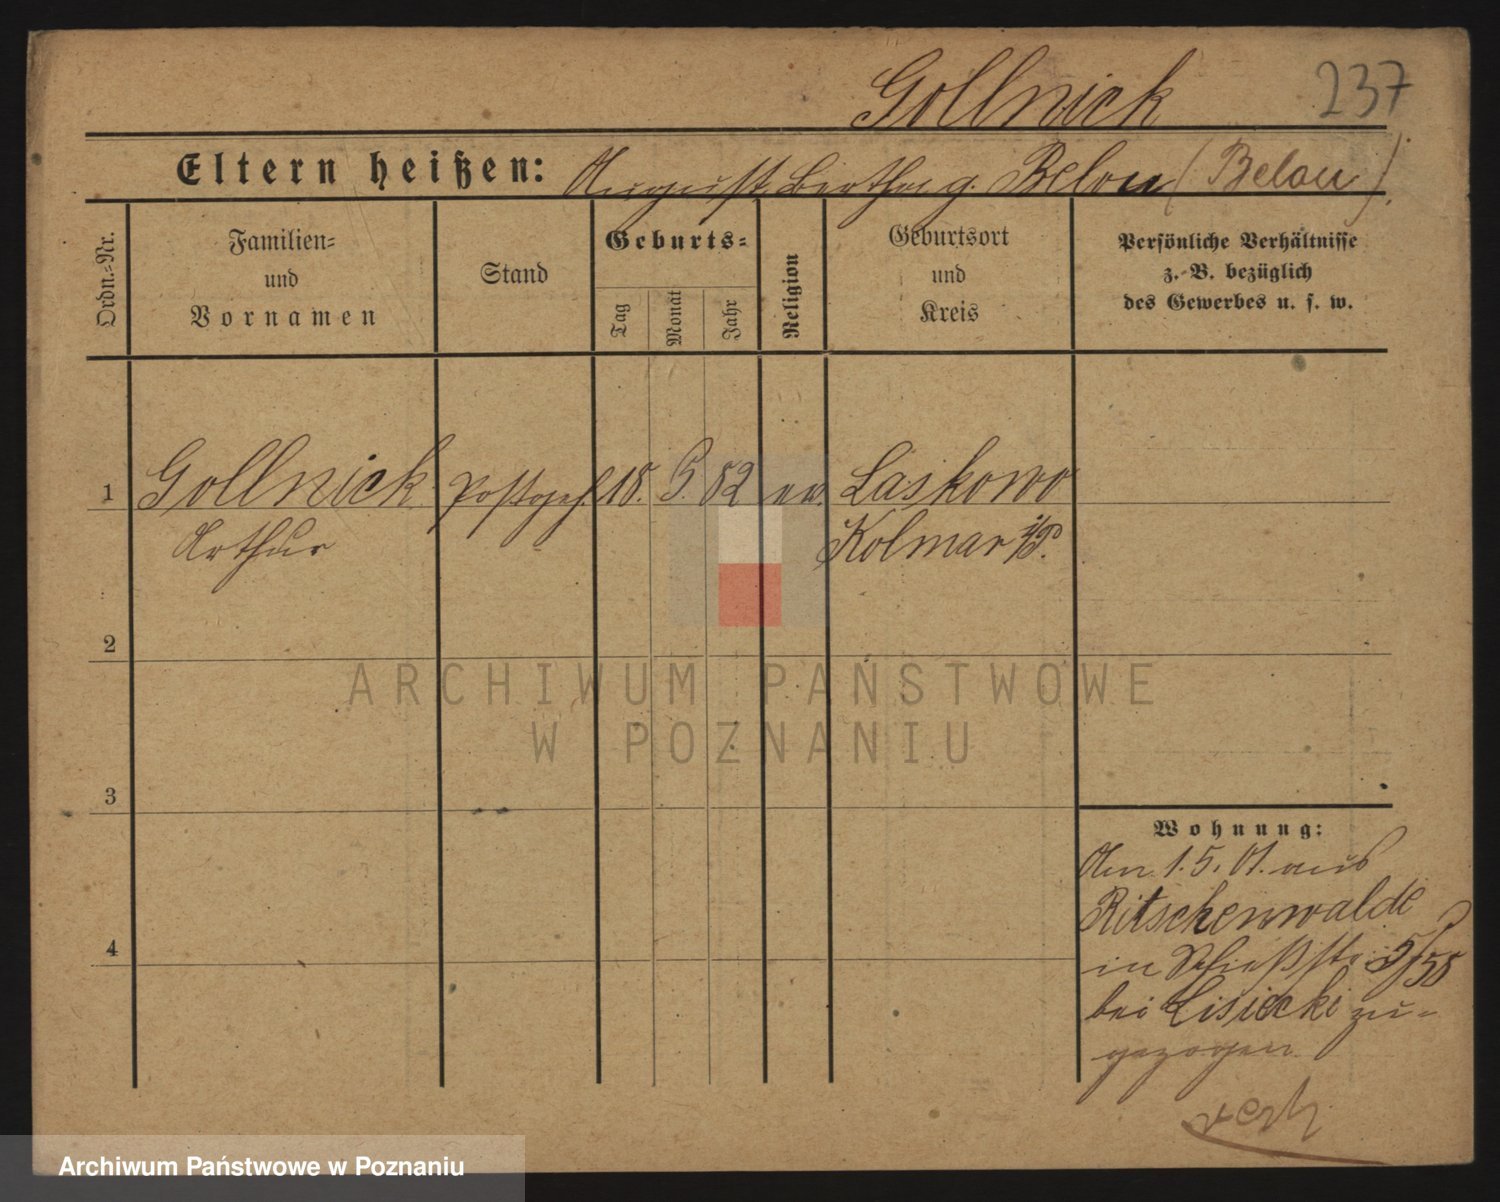 Gollnick 237
Eltern heißen: August, Bertha g. Belau (Belau).
Ordn.-Nr.
Familien-
und
Vornamen
Stand
Geburts-
Tag
Monat
Jahr
Religion
Geburtsort
und
Kreis
Persönliche Verhältnisse
z. B. bezüglich
des Gewerbes u. s. w.
1 Gollnick Postgeh. 18. 5. 82 ev. Laskowo
Arthur Kolmar i/P.
2
3
4
Wohnung:
Am 1.5.01. aus
Ritschenwalde
in Schießstr. 5/58
bei Lisiecki zu-
gezogen.
ARCHIWUM PAŃSTWOWE
W POZNANIU
Archiwum Państwowe w Poznaniu